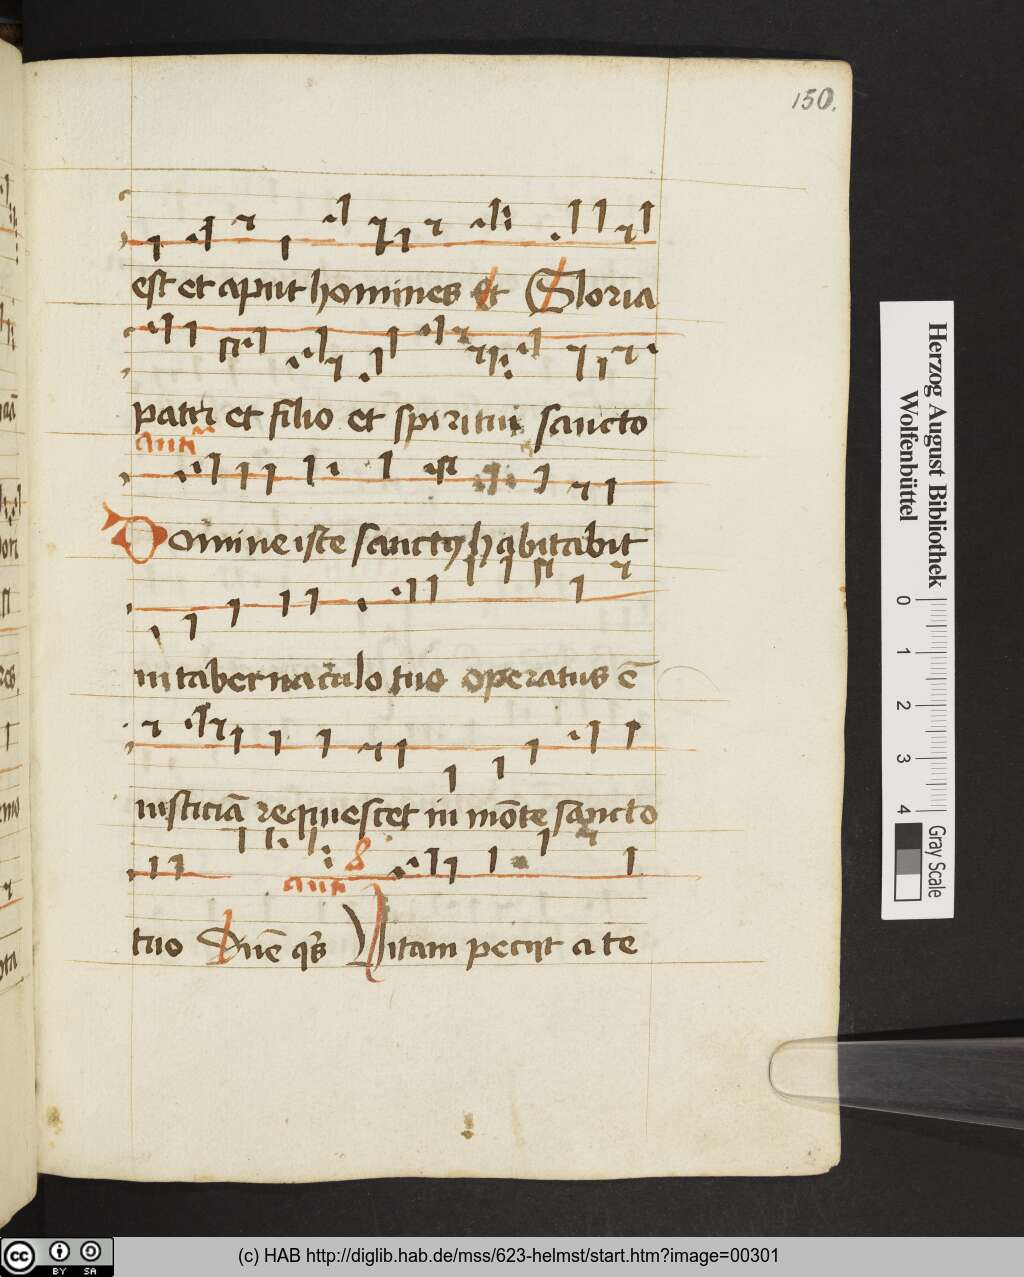 150.
est et aput homines et Gloria
patri et filio et spiritui sancto
anti
Domine iste sanctꝯ habitabit
in tabernaculo tuo operatus ē
iusticiā requiescet in mōte sancto
anti 8
tuo Dūe q̄s Vitam peciit a te
Herzog August Bibliothek
Wolfenbüttel
0 1 2 3 4
Gray Scale
cc BY SA
(c) HAB http://diglib.hab.de/mss/623-helmst/start.htm?image=00301